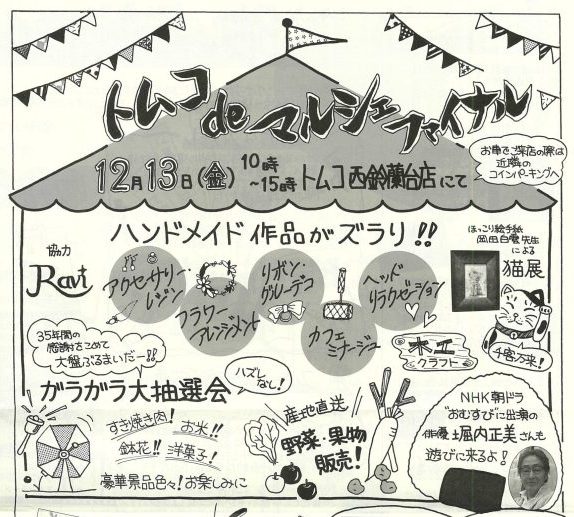 トムコ de マルシェ ファイナル
12月13日(金) 10時~15時 トムコ西鈴蘭台店にて
お車でご来店の際は
近隣の
コインパーキングへ
ハンドメイド作品がズラリ!!
協力
Ravi
アクセサリー・
レジン
フラワー
アレンジメント
リボン・
グルーデコ
カフェ
ミナージュ
ヘッド
リラクゼーション
木工
クラフト
ほっこり絵手紙
岡田白鷺先生
による
猫展
千客万来!
35年間の
感謝をこめて
大盤ぶるまいだー!!
ガラガラ大抽選会
ハズレ
なし!
すき焼き肉! お米!!
鉢花!! 洋菓子!
豪華景品色々!お楽しみに
産地直送
野菜・果物
販売!
NHK朝ドラ
"おむすび"に出演の
俳優 堀内正美さんも
遊びに来るよ!